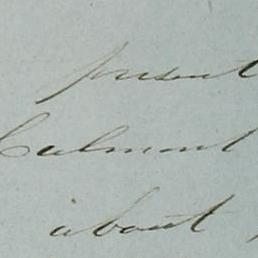 present
Culment
about